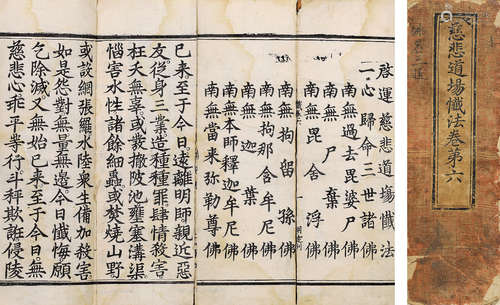 慈悲道場懺法卷第六
啓運慈悲道場懺法
一心歸命三世諸佛
南無過去毘婆尸佛
南無尸棄佛
南無毘舍浮佛
南無拘留孫佛
南無拘那含牟尼佛
南無迦葉佛
南無本師釋迦牟尼佛
南無當來彌勒尊佛
已來至于今日遠離明師親近惡
友從身三業造種種罪肆情殺害
枉夭無辜或撤陂池壅塞溝渠
惱害水性諸餘細蟲或焚燒山野
或設網張羅水陸衆生備加殺害
如是怨對無量無邊今日懺悔願
乞除滅又無始已來至于今日無
慈悲心乖平等行斗秤欺誑侵陵